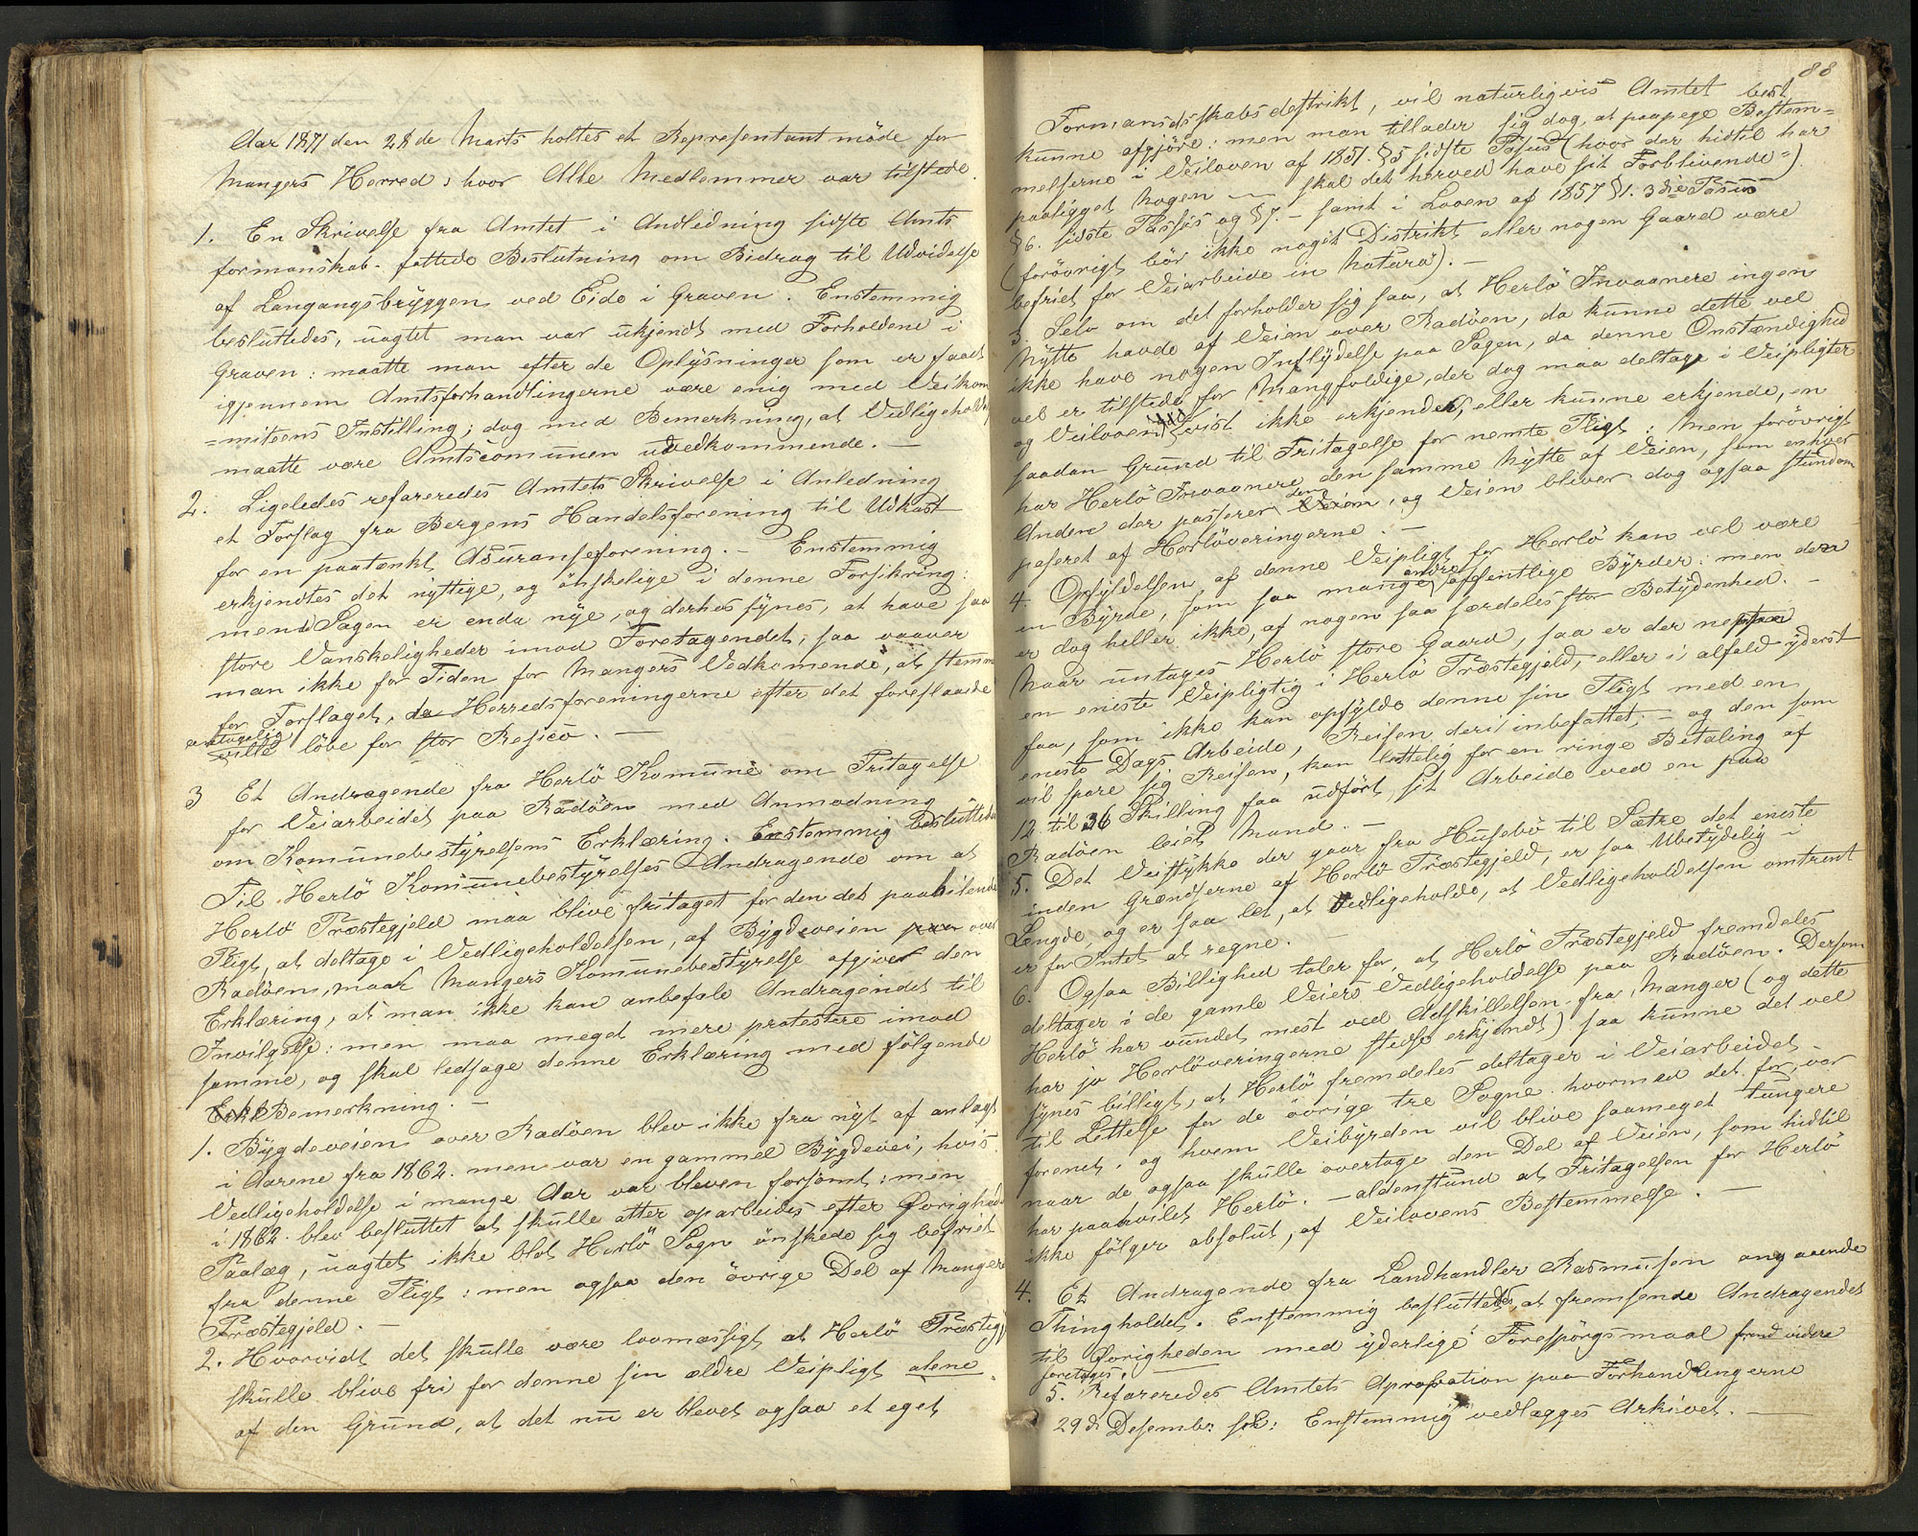 Aar 1871 den 28de Marts holtes et Representantmöde for
Mangers Herred; hvor Alle Medlemmer var tilstede.
1. En Skrivelse fra Amtet i Andledning sidste Amts
formanskab. fattede Beslutning om Bidrag til Udvidelse
af Langangsbryggen ved Eide i Graven. Enstemmig
besluttedes, uagtet man var ukjendt med Forholdene i
Graven: maatte man efter de Oplysninger som er faaet
igjennem Amtsforhandlingerne være enig med Veikom
=miteens Instilling; dog med Bemerkning, at Vedligeholde
maatte være Amtscomunen uvedkommende. —
2. Ligeledes refereredes Amtets Skrivelse i Anledning
et Forslag fra Bergens Handelsforening til Udkast
for en paatænkt Asuranseforening. — Enstemmig
erkjendtes det nyttige, og önskelige i denne Forsikring:
mend Sagen er enda nye, og derhos synes, at have saa
store Vanskeligheder imod Foretagendet, saa vaaver
man ikke for Tiden for Mangers Vedkomende, at stemme
for Forslaget, da Herredsforeningerne efter det foreslaaede
antagelig
ville löbe for stor Resico. —
3 Et Andragende fra Herlö Komune om Fritagelse
for Veiarbeidet paa Radöen med Anmodning
om Komunebestyrelsens Erklæring. Enstemmig besluttedes
Til Herlö Komunebestyrelses Andragende om at
Herlö Præstegjeld maa blive fritaget for den det paahvilende
Pligt, at deltage i Vedligeholdelsen, af Bygdeveien paa over
Radöen, maa Mangers Komunebestyrelse afgive den
Erklæring, at man ikke kan anbefale Andragendet til
Invilgelse: men maa meget mere protestere imod
samme, og skal ledsage denne Erklæring med fölgende
Erkl Bemerkning. —
1. Bygdeveien over Radöen blev ikke fra nyt af anlagt
i Aarene fra 1862. men var en gammel Bygdevei, hvis
Vedligeholdelse i mange Aar var bleven forsömt: men
i 1862. blev besluttet at skulle atter oparbeides efter Øvrigheds
Paalæg, uagtet ikke blot Herlö Sogn önskede sig befriet
fra denne Pligt: men ogsaa den övrige Del af Manger
Præstegjeld. —
2. Hvorvidt det skulle være lovmæssigt at Herlö Præstegj
skulle blive fri for denne sin ældre Veipligt alene
af den Grund, at det nu er blevet ogsaa et eget
88
Formandsskabsdestrikt, vil naturligvis Amtet best
kunne afgjöre: men man tillader sig dog, at paapege Bestem=
melserne i Veiloven af 1851. §5 sidste Pasus (hvor der hidtil har
paaligget nogen — skal det herved have sit Forblivende=).
§6. sidste Passus og §7. — samt i Loven af 1857 §1. 3die Pasus
(forövrigt bör ikke noget Distrikt eller nogen Gaard være
befriet for Veiarbeide in natura). —
3. Selv om det forholder sig saa, at Herlö Invaanere ingen
Nytte havde af Veien over Radöen, da kunne dette vel
ikke have nogen Inflydelse paa Sagen, da denne Omstændighed
vel er tilstede for Mangfoldige, der dog maa deltage i Veipligter
og Veiloven vist ikke erkjender, eller kunne erkjende, en
saadan Grund til Fritagelse for nemte Pligt: Men forövrigt
har Herlö Invaanere den samme Nytte af Veien, som enhver
Anden der passerer den Veien, og Veien bliver dog ogsaa stundom
paseret af Herlöveringerne. —
4. Opfyldelsen af denne Veipligt for Herlö kan vel være
en Byrde, som saa mange andre offentlige Byrder: men den
er dog heller ikke, af nogen saa særdeles stor Betydenhed. —
Naar untages Herlö store Gaard, saa er der neppe
en eneste Veipligtig i Herlö Præstegjeld, eller i, alfald yderst
faa, som ikke kan opfylde denne sin Pligt med en
eneste Dags Arbeide, Reisen deri inbefattet; — og den som
vil spare sig Reisen, kan lettelig for en ringe Betaling af
12 til 36 Skilling faa udfört sit Arbeide ved en paa
Radöen leiet Mand. —
5. Det Veistykke der gaar fra Husebö til Sætre det eneste
inden Grændserne af Herlö Præstegjeld, er saa Ubetydelig i
Længde, og er saa let, at Vedligeholde, at Vedligeholdelsen omtrent
er for Intet at regne. —
6. Ogsaa Billighed taler for, at Herlö Præstegjeld fremdeles
deltager i de gamle Veiers Vedligeholdelse paa Radöen. Dersom
Herlö har vundet mest ved Adskillelsen fra Manger (og dette
har jo Herlöveringerne stedse erkjendt) saa kunne det vel
synes billigt, at Herlö fremdeles deltager i Veiarbeidet
til Lettelse for de övrige tre Sogne. hvormed det för, var
forenet. og hvem Veibyrden vil blive saameget tungere
naar de ogsaa skulle overtage den Del af Veien, som hidtil
har paahvilet Herlö. — aldenstund at Fritagelsen for Herlö
ikke fölger absolut, af Veilovens Bestemmelse. —
4. Et Andragende fra Landhandler Rasmusen angaaende
Thingholdet. Enstemmig besluttedes, at fremsende Andragendet
til Øvrigheden med yderlige Forespörgsmaal hvad videre
foretages.
5. Refereredes Amtets Aprobation paa Forhandlingerne
29de Desembr: f: Enstemmig vedlægges Arkivet. —